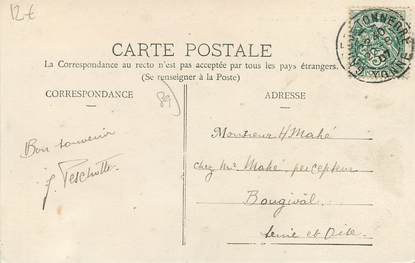 12€
CARTE POSTALE
La Correspondance au recto n'est pas acceptée par tous les pays étrangers.
(Se renseigner à la Poste)
CORRESPONDANCE
ADRESSE
89
Bon souvenir
Monsieur H Mahé
chez Mr Mahé percepteur
Bougival
Seine et Oise
YONNE
5